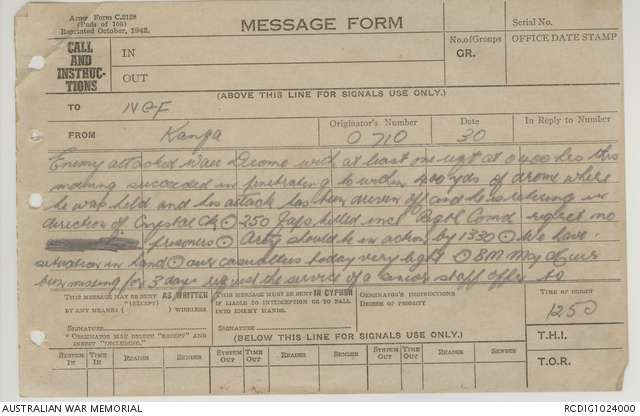 Army Form C.2128
(Pads of 100)
Reprinted October, 1942.
MESSAGE FORM
Serial No.
CALL AND INSTRUC-TIONS
IN
OUT
No. of Groups
GR.
OFFICE DATE STAMP
(ABOVE THIS LINE FOR SIGNALS USE ONLY.)
TO NGF
FROM Kanga
Originator's Number
O 710
Date
30
In Reply to Number
Enemy attacked Wau Drome with at least one regt at 0400 hrs this
morning succeeded in penetrating to within 400 yds of drome where
he was held and his attack has been driven off and he is retiring in
direction of Crystal Ck ⊙ 250 Japs killed incl Regtl Comd regret no
prisoners ⊙ Arty should be in action by 1330 ⊙ We have
situation in hand ⊙ our casualties today very light ⊙ BM
been missing for 3 days request the service of a senior staff offr to
THIS MESSAGE MAY BE SENT AS WRITTEN
(EXCEPT)
BY ANY MEANS ( ) WIRELESS
SIGNATURE
* ORIGINATOR MAY DELETE "EXCEPT" AND
INSERT "INCLUDING."
THIS MESSAGE MUST BE SENT IN CYPHER
IF LIABLE TO INTERCEPTION OR TO FALL
INTO ENEMY HANDS.
SIGNATURE
ORIGINATOR'S INSTRUCTIONS
DEGREE OF PRIORITY
TIME OF ORIGIN
1250
(BELOW THIS LINE FOR SIGNALS USE ONLY.)
T.H.I.
SYSTEM IN TIME IN READER SENDER SYSTEM OUT TIME OUT READER SENDER SYSTEM OUT TIME OUT READER SENDER
T.O.R.
AUSTRALIAN WAR MEMORIAL
RCDIG1024000